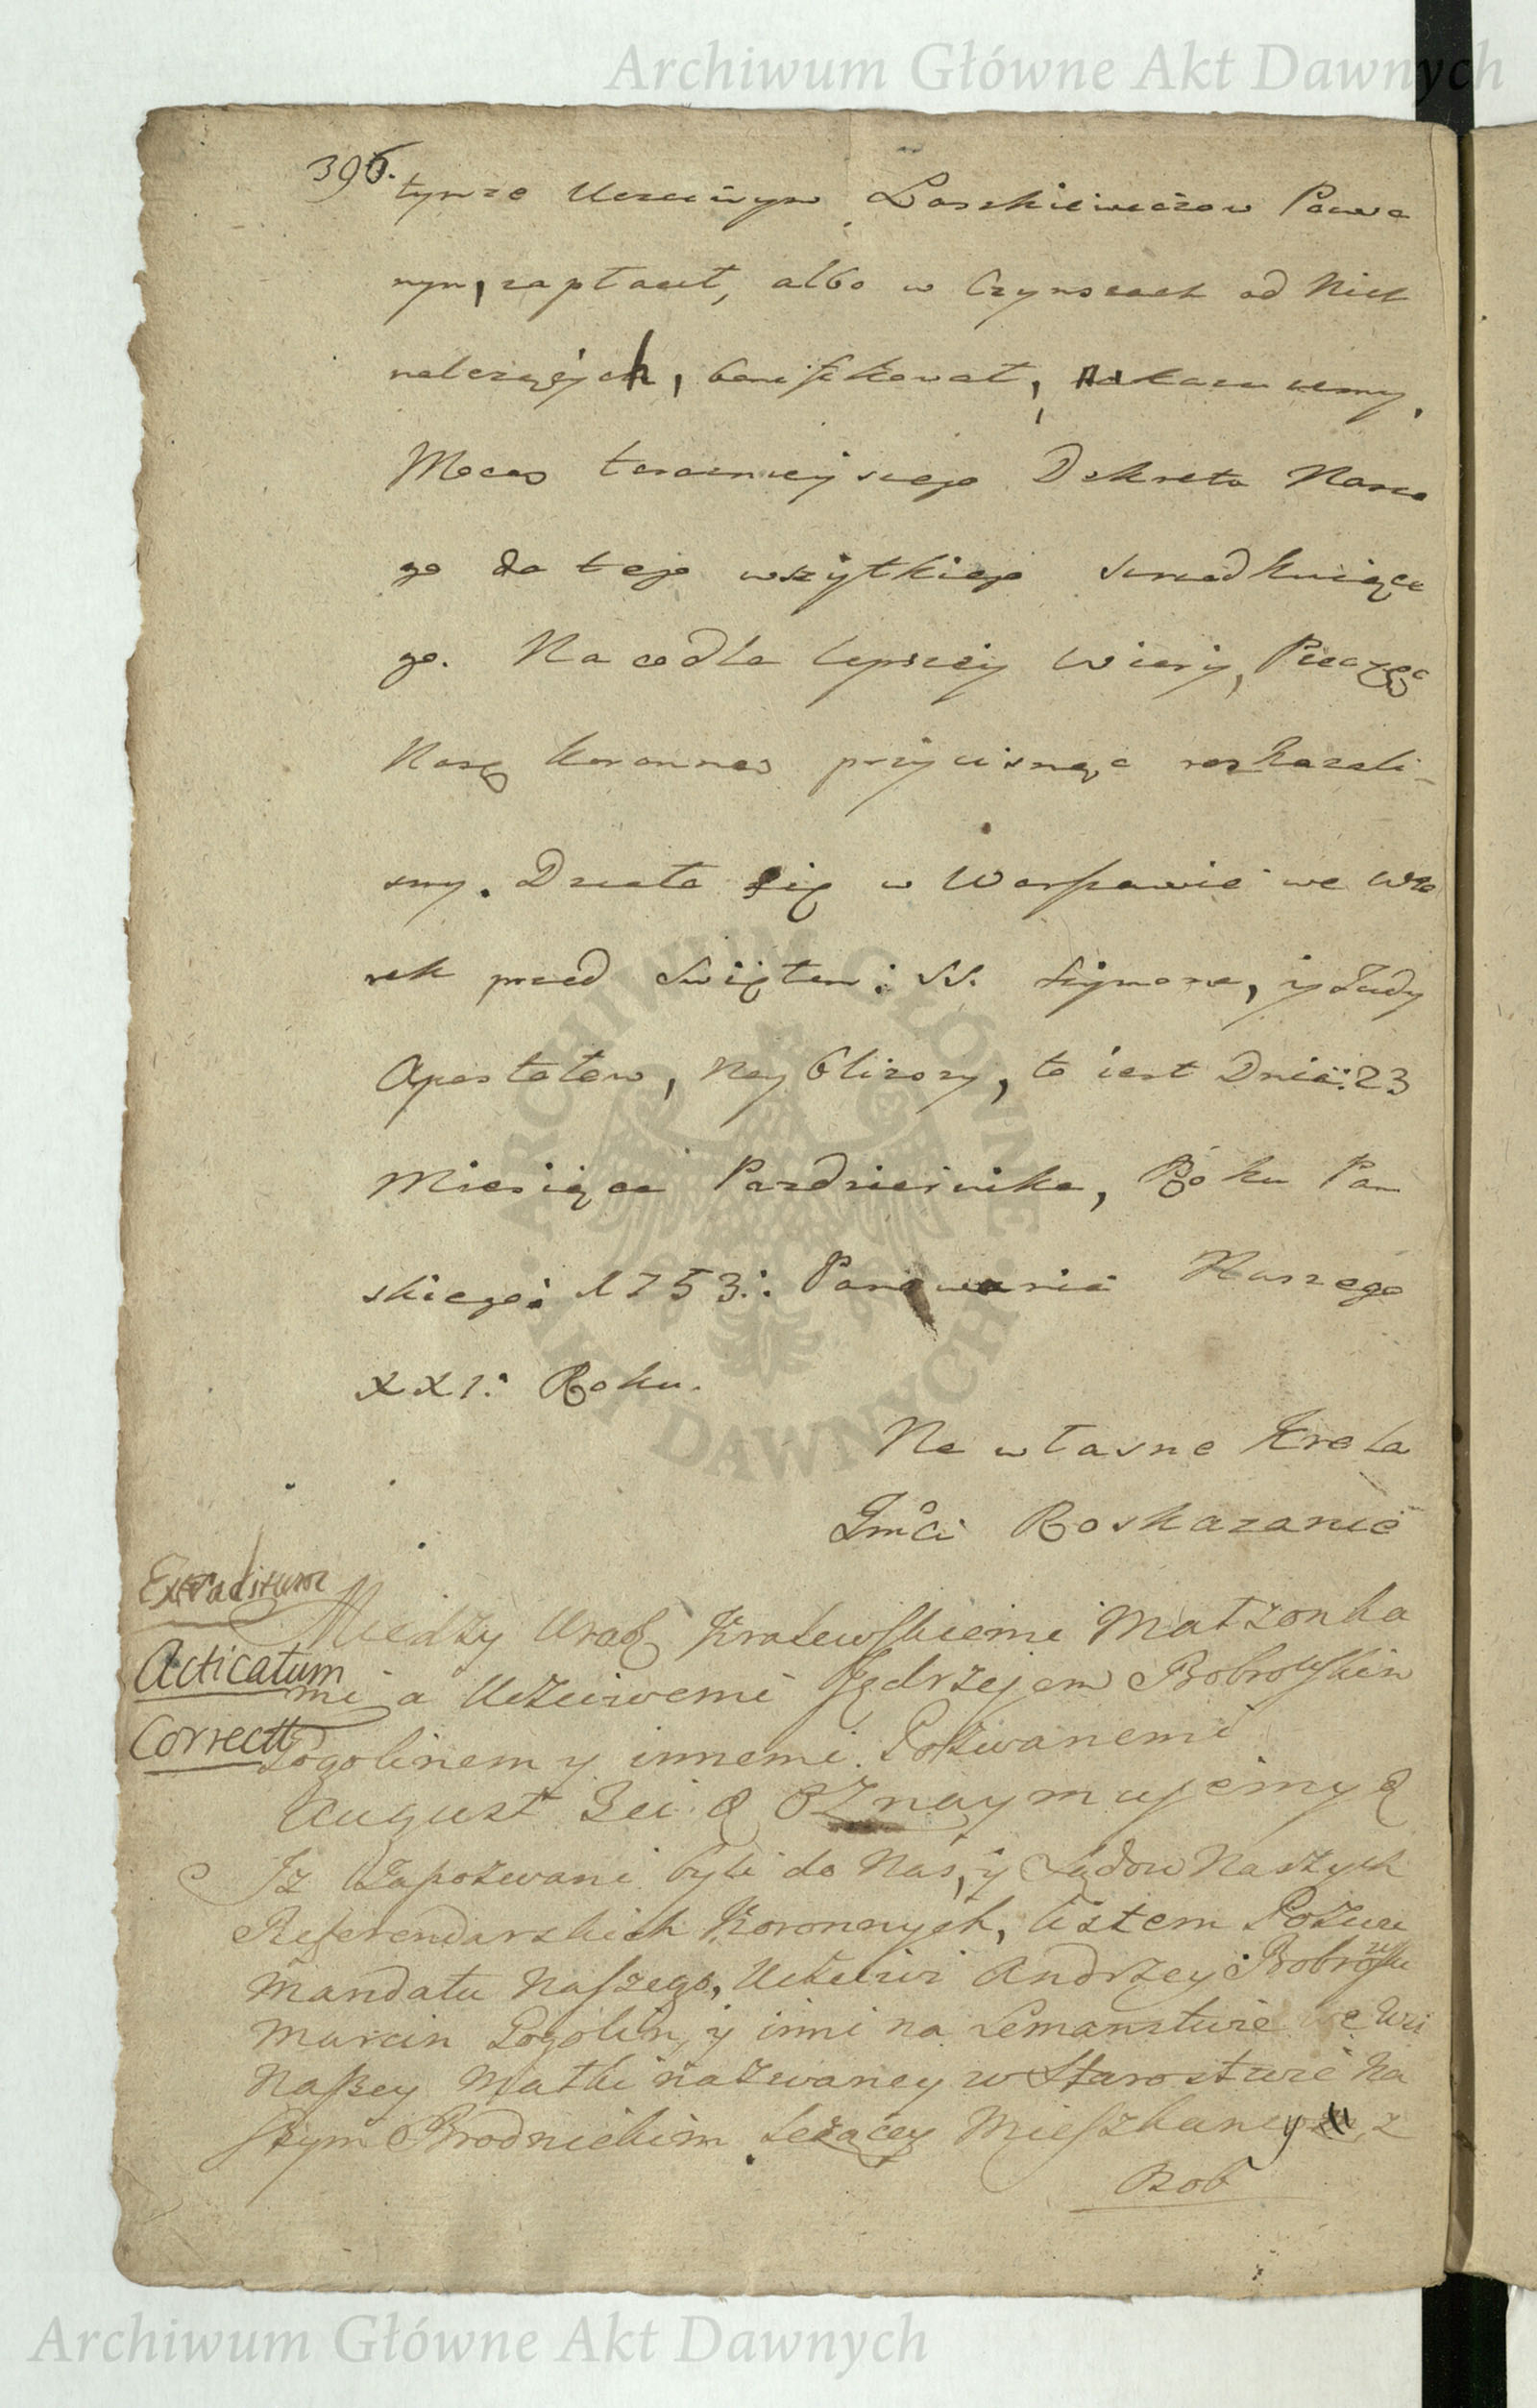 Archiwum Główne Akt Dawnych
396.
tymze Uczciwym Laszkiewiczow Pozwa
nym, zapłacił, albo w Czynszach od Nich
nalezących, bonifikował, nakazuiemy,
Mocą teraznieyszego Dekretu Nasze
go do tego wszytkiego
go. Na co dla lepszey Wiary, Pieczęć
Naszą Koronną przycisnąc roskazali-
smy. Działo się w Warszawie we Wto
rek przed Swiętem: SS. Szymona, y Judy
Apostołow, Nay blizszy, to iest Dnia: 23
Miesiąca Pazdziernika, Roku Pan
skiego: 1753.: Panowania Naszego
XXI: Roku.
Na własne Krola
Jmci Roskazanie
Extraditum
Między Urodz Kralewskiemi Małzonka
Acticatum
mi a Uczciwemi Jędrzejem Bobrowskim
Correctt
Pogolinem y innemi Pozwanemi
August III Oznaymujemy
Iz Zapozwani byli do Nas, y Sądow Naszych
Referendarskich Koronnych, listem Pozwu
Mandatu Naszego, Uczciwi Andrzey Bobrowski
Marcin Pogolin, y inni na Lemanstwie we Wsi
Naszey Matki nazwaney w Starostwie Na
szym Brodnickim Leżącey Mieszkaney, z
Bob
Archiwum Główne Akt Dawnych